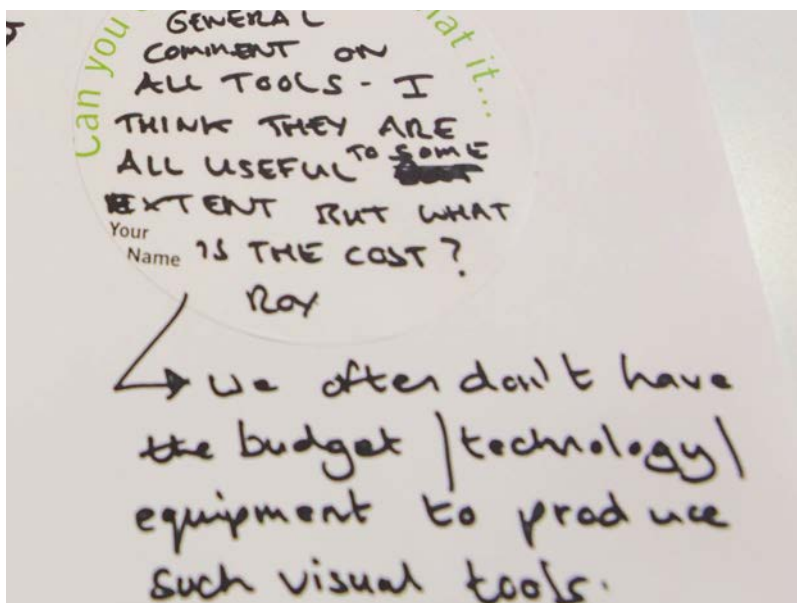 Can you
hat it...
GENERAL
COMMENT ON
ALL TOOLS - I
THINK THEY ARE
ALL USEFUL TO SOME
EXTENT BUT WHAT
Your
Name
IS THE COST?
ROY
we often don't have
the budget /technology/
equipment to produce
such visual tools.